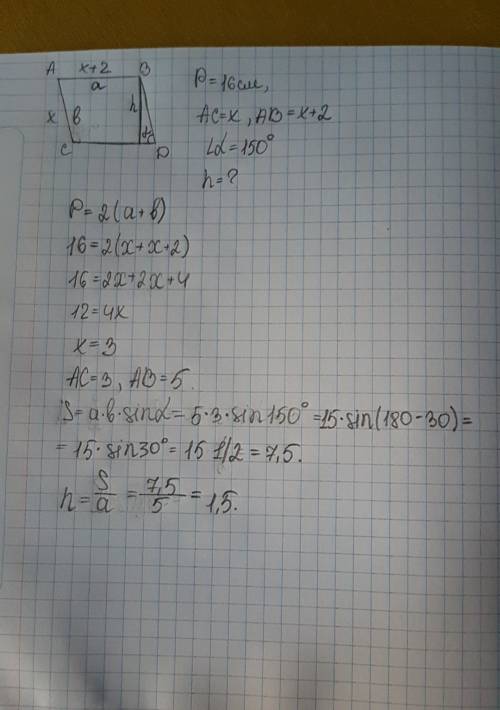 A x+2 B
a
x b h α
C D
P=16см,
AC=x, AB=x+2
∠α=150°
h=?
P=2(a+b)
16=2(x+x+2)
16=2x+2x+4
12=4x
x=3
AC=3, AB=5.
S=a·b·sinα=5·3·sin150°=15·sin(180-30)=
=15·sin30°=15 1/2=7,5.
h=S/a=7,5/5=1,5.